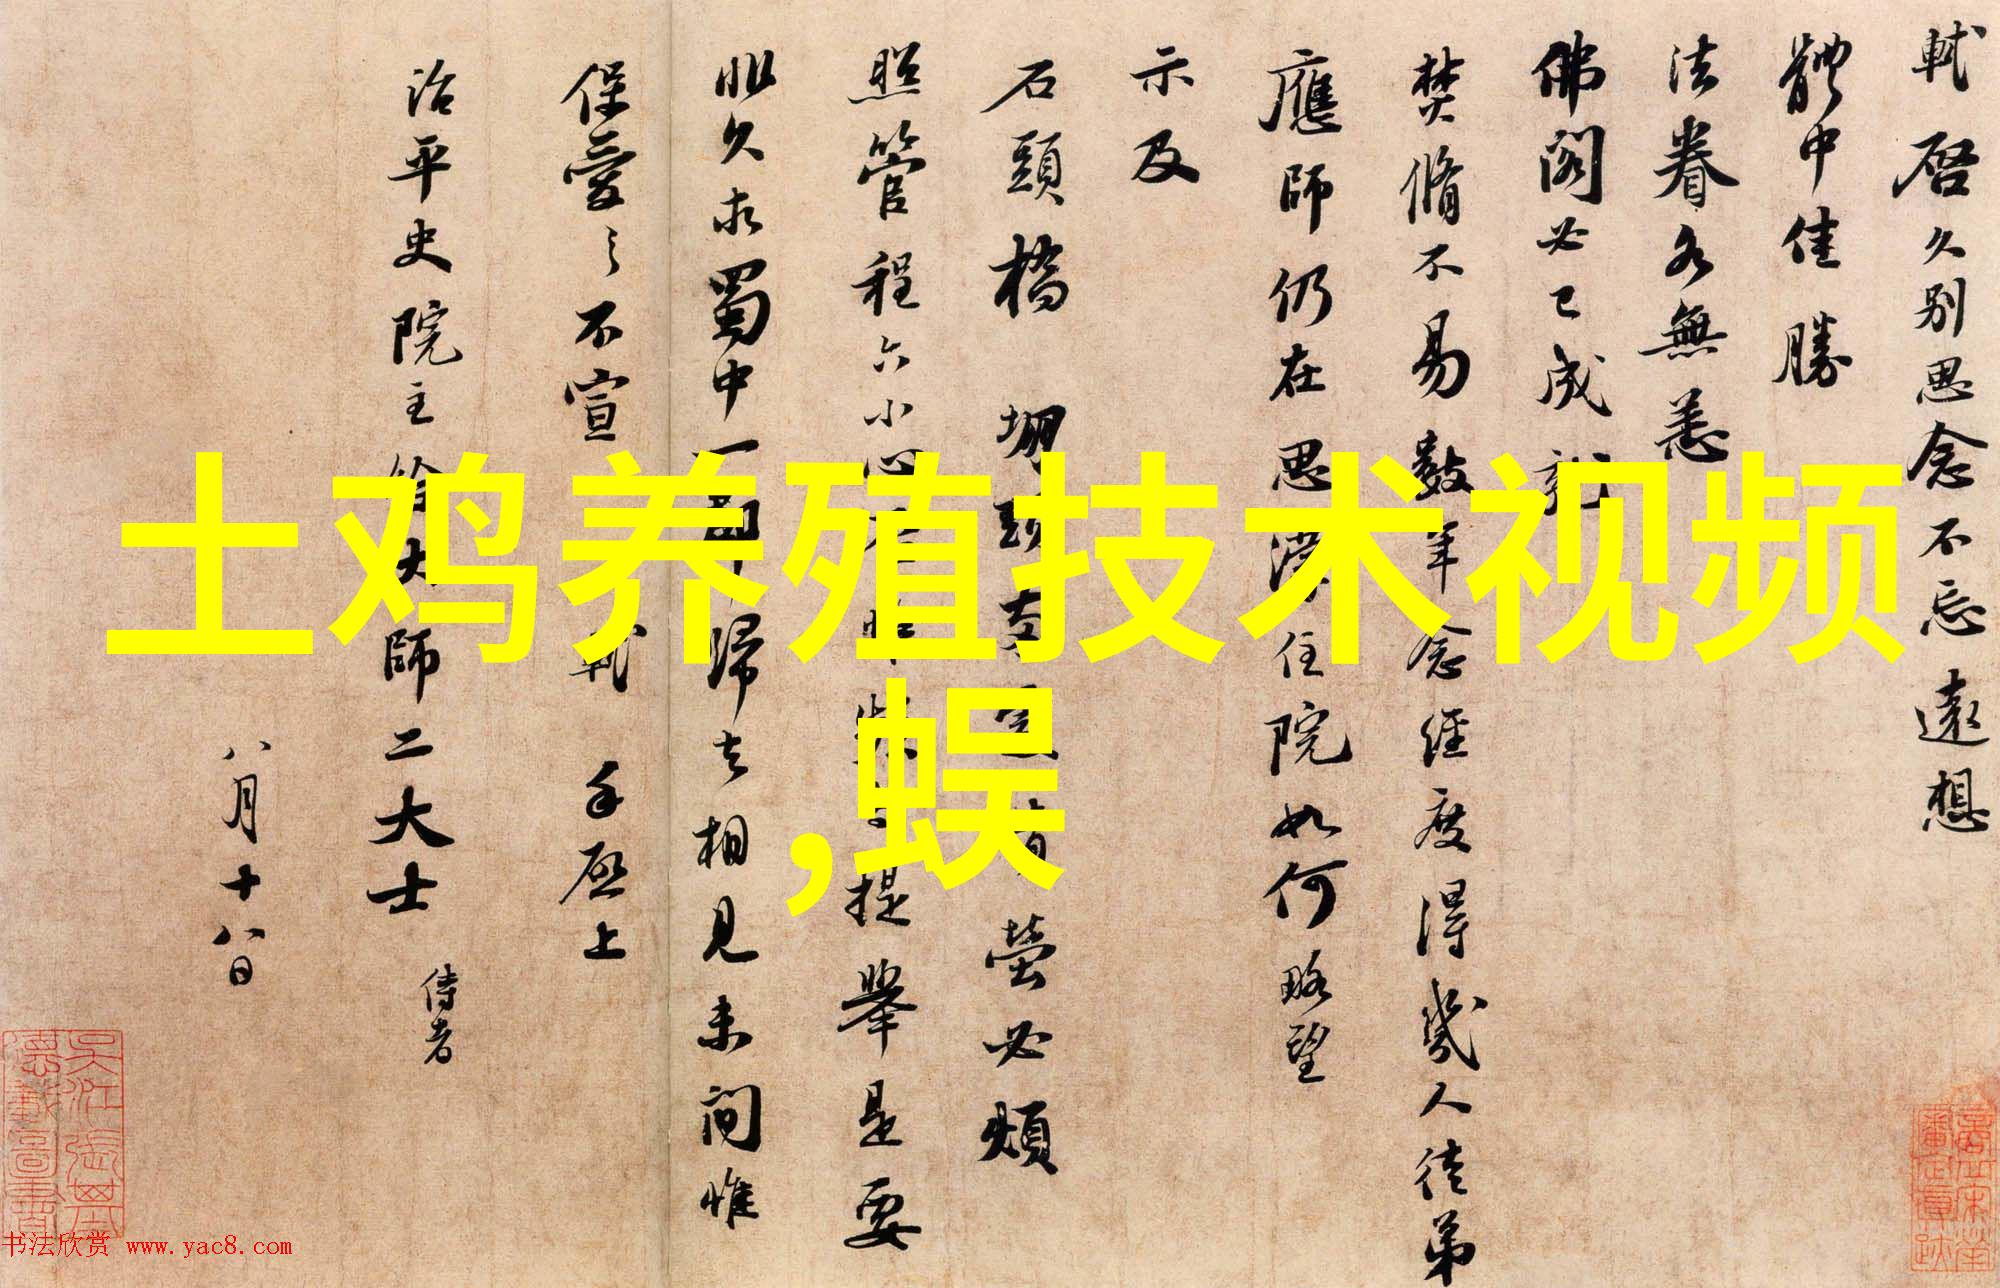 土鸡养殖技术视频
,蜈
軾啓久别思念不忘遠想
體中佳勝
法眷各無恙
佛閣必已成就
焚脩不易數年念經度得幾人徒弟
應師仍在思濛住院如何略望
示及
石頭橋堋頭墳塋必煩
照管程六小心提舉是要
非久求蜀中一郡歸去相見未間惟
保愛之不宣軾手啓上
治平史院主徐大師二大士侍者
八月十八日
书法欣赏 www.yac8.com